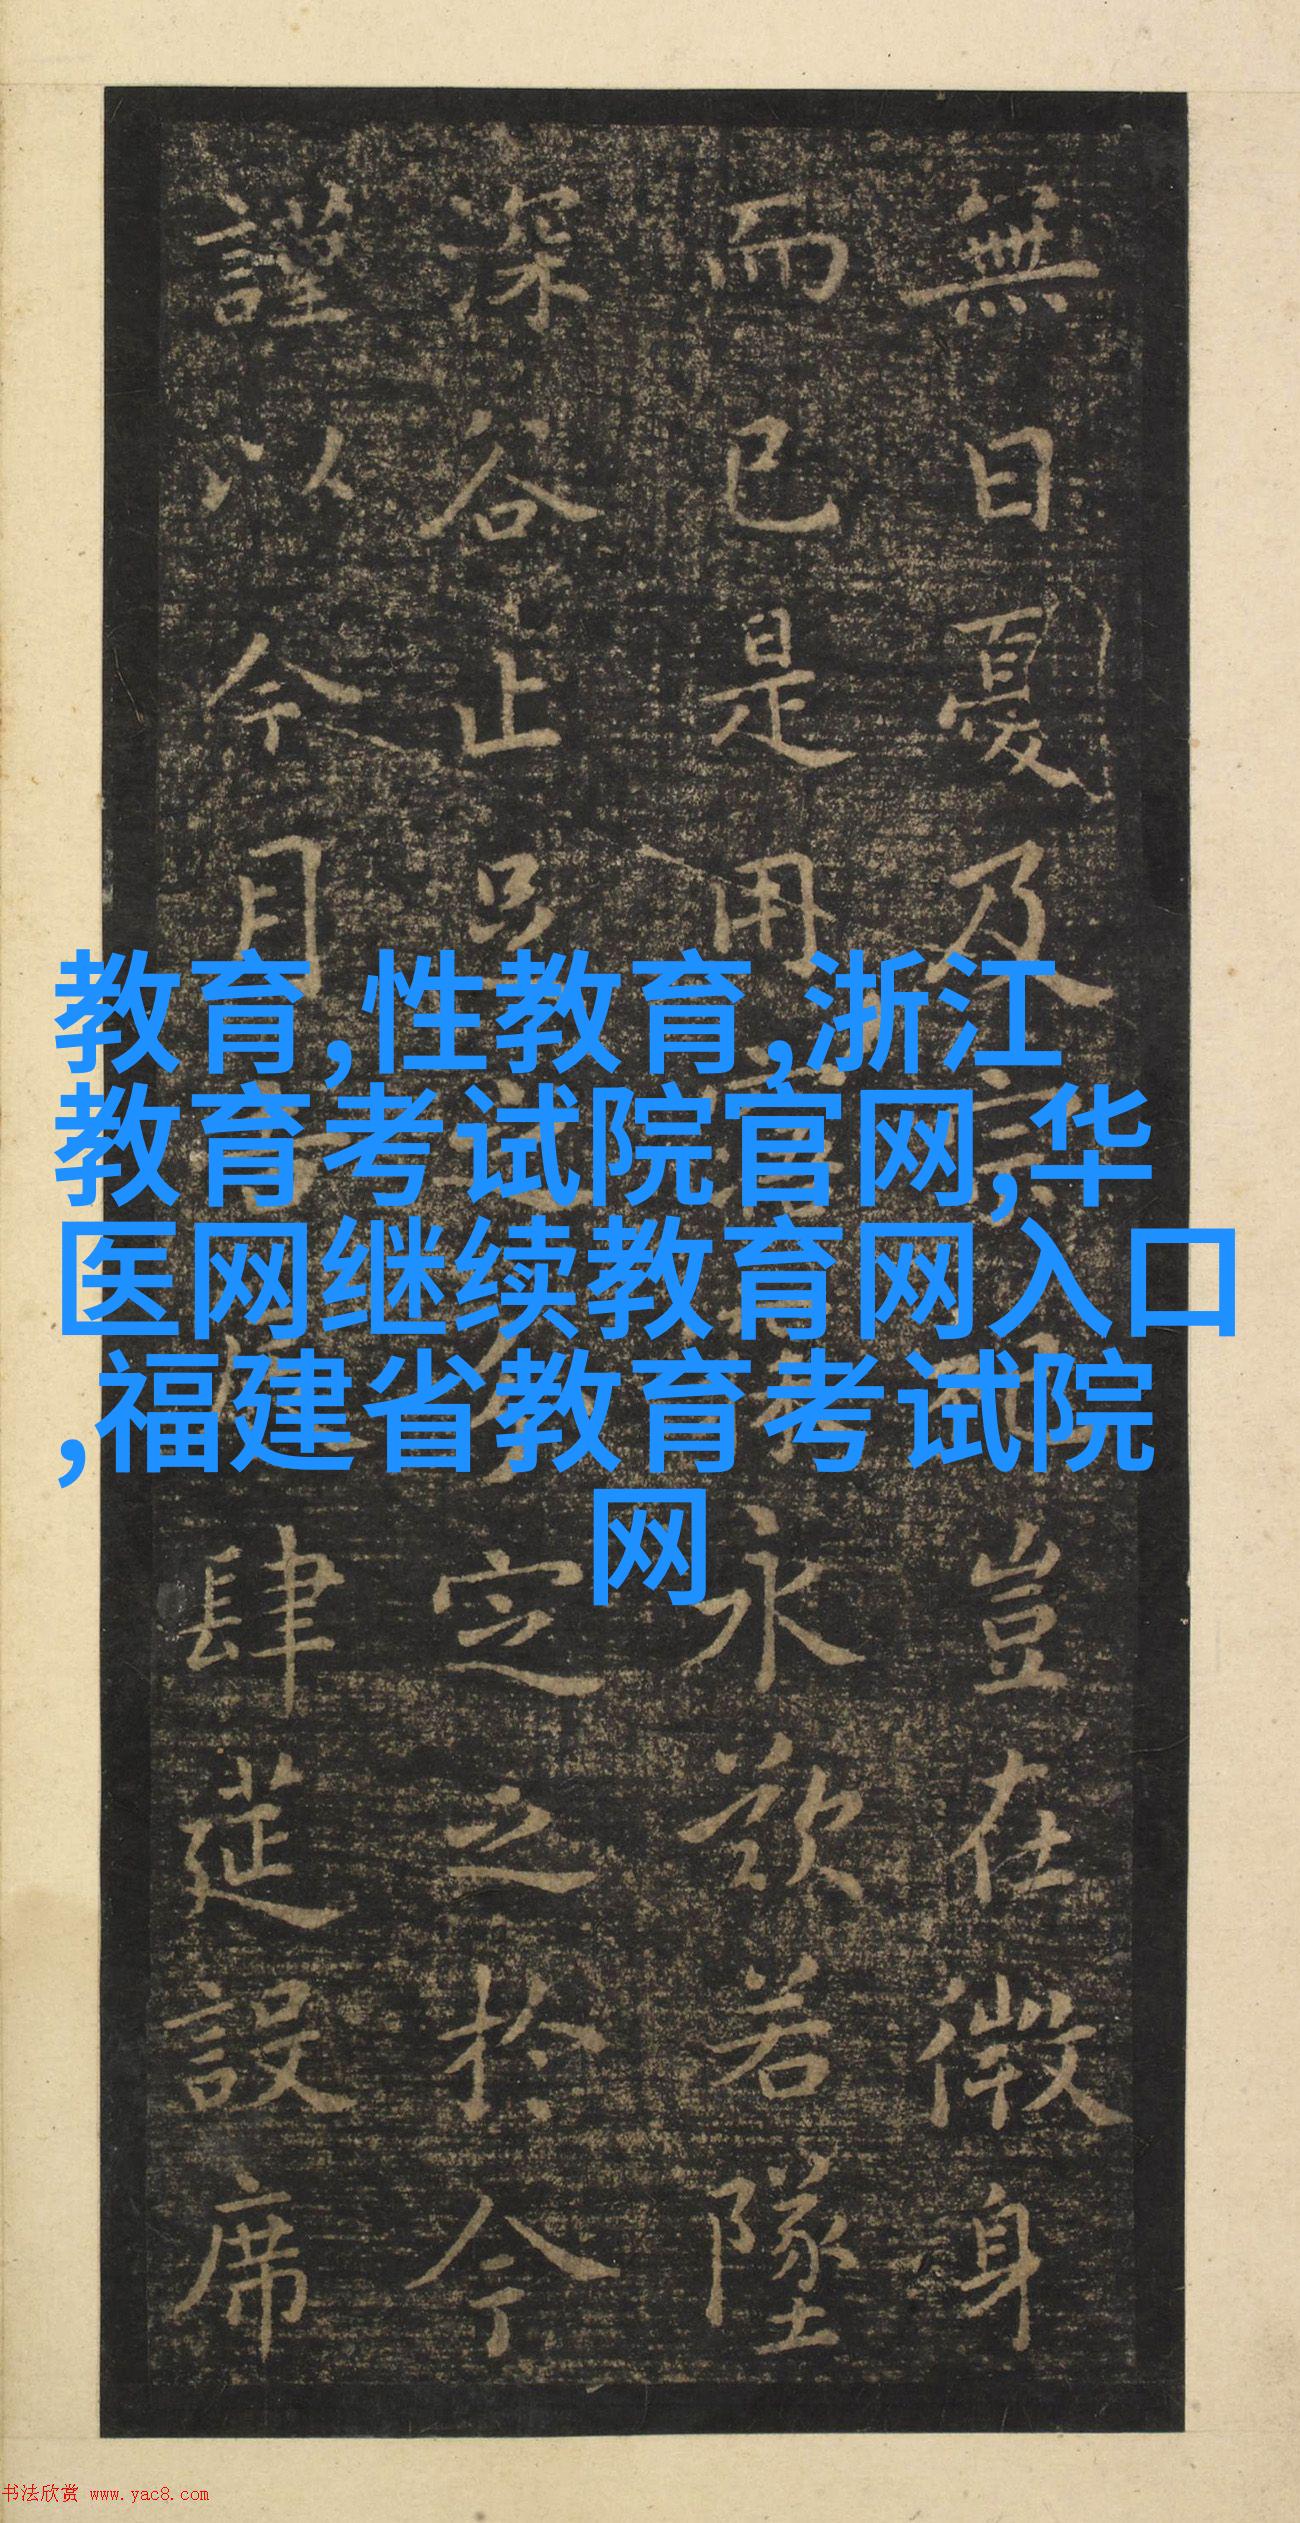 無日憂及宗豈在微身
而已是用寤永歎若墜
深谷止足之分定之於今
謹以今月肆筵設席
教育,性教育,浙江
教育考试院官网,华
医网继续教育网入口
,福建省教育考试院
网
书法欣赏 www.yac8.com